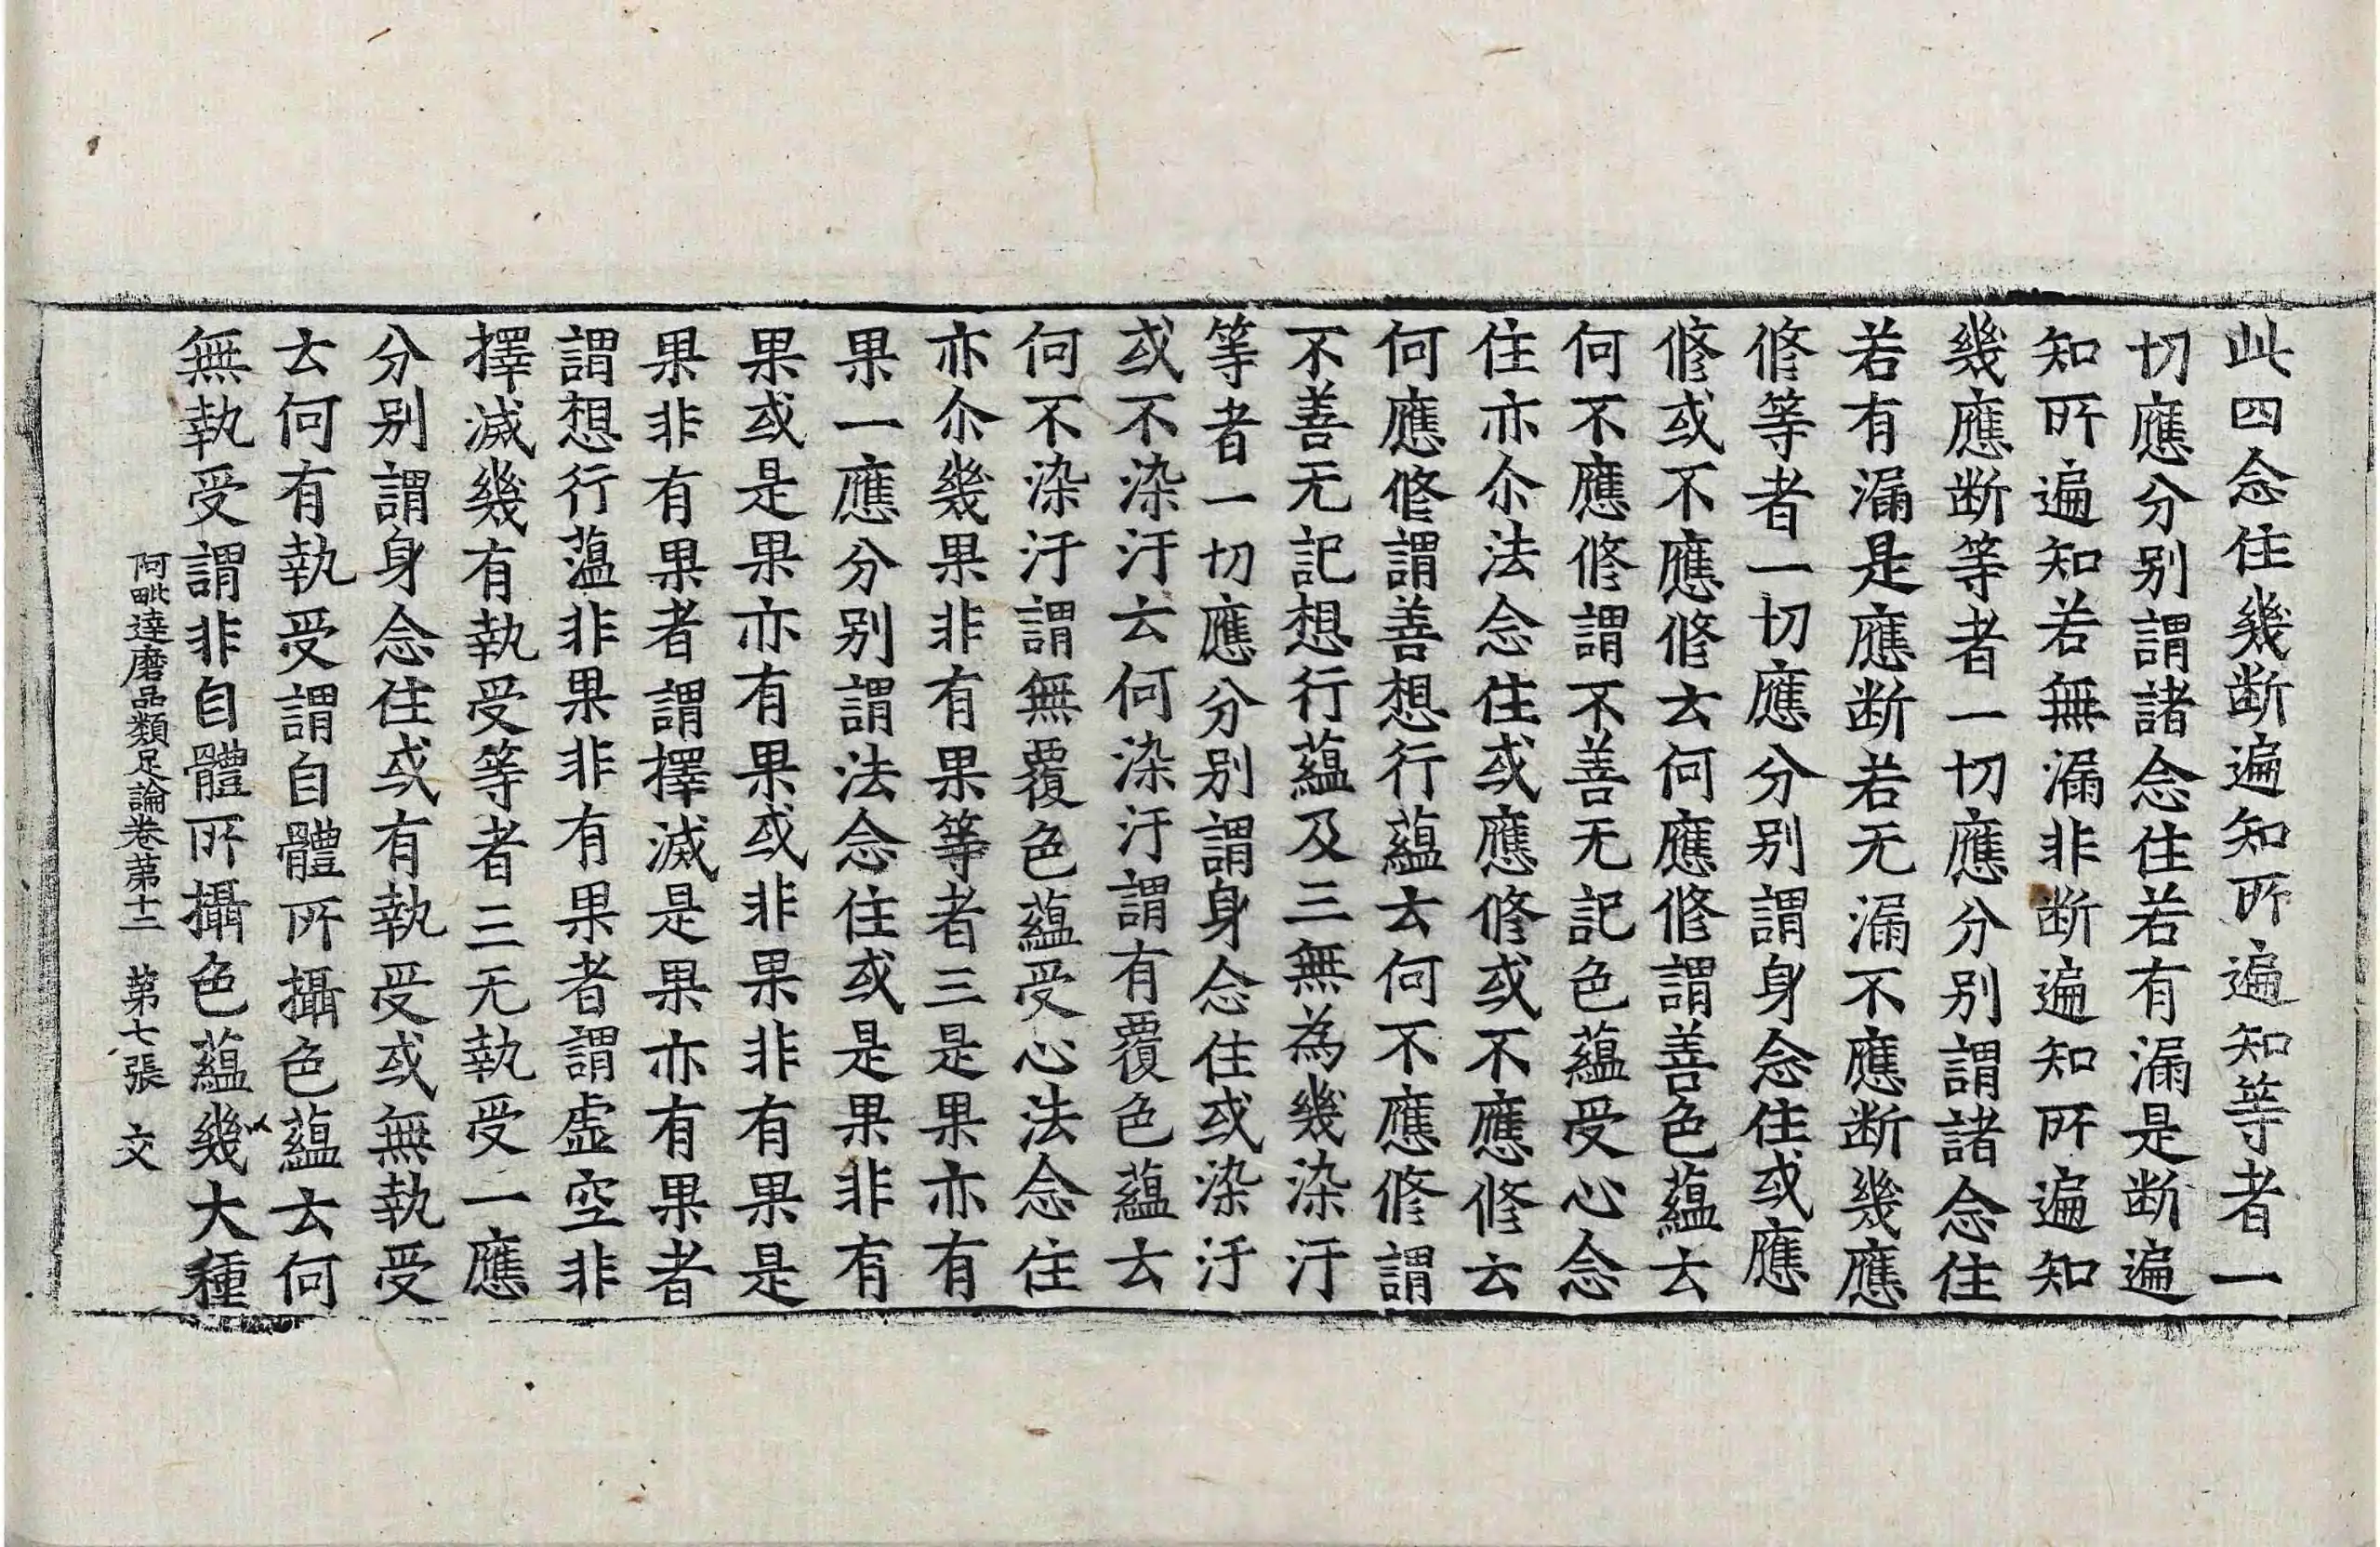 此四念住幾断遍知所遍知等者一
切應分別謂諸念住若有漏是断遍
知所遍知若無漏非断遍知所遍知
幾應断等者一切應分別謂諸念住
若有漏是應断若无漏不應断幾應
修等者一切應分別謂身念住或應
修或不應修云何應修謂善色蘊云
何不應修謂不善无記色蘊受心念
住亦尒法念住或應修或不應修云
何應修謂善想行蘊云何不應修謂
不善无記想行蘊及三無為幾染汙
等者一切應分別謂身念住或染汙
或不染汙云何染汙謂有覆色蘊云
何不染汙謂無覆色蘊受心法念住
亦尒幾果非有果等者三是果亦有
果一應分別謂法念住或是果非有
果或是果亦有果或非果非有果是
果非有果者謂擇滅是果亦有果者
謂想行蕰非果非有果者謂虛空非
擇滅幾有執受等者三无執受一應
分別謂身念住或有執受或無執受
云何有執受謂自體所攝色蘊云何
無執受謂非自體所攝色蘊幾大種
阿毗達磨品類足論卷第十二　第七張　文